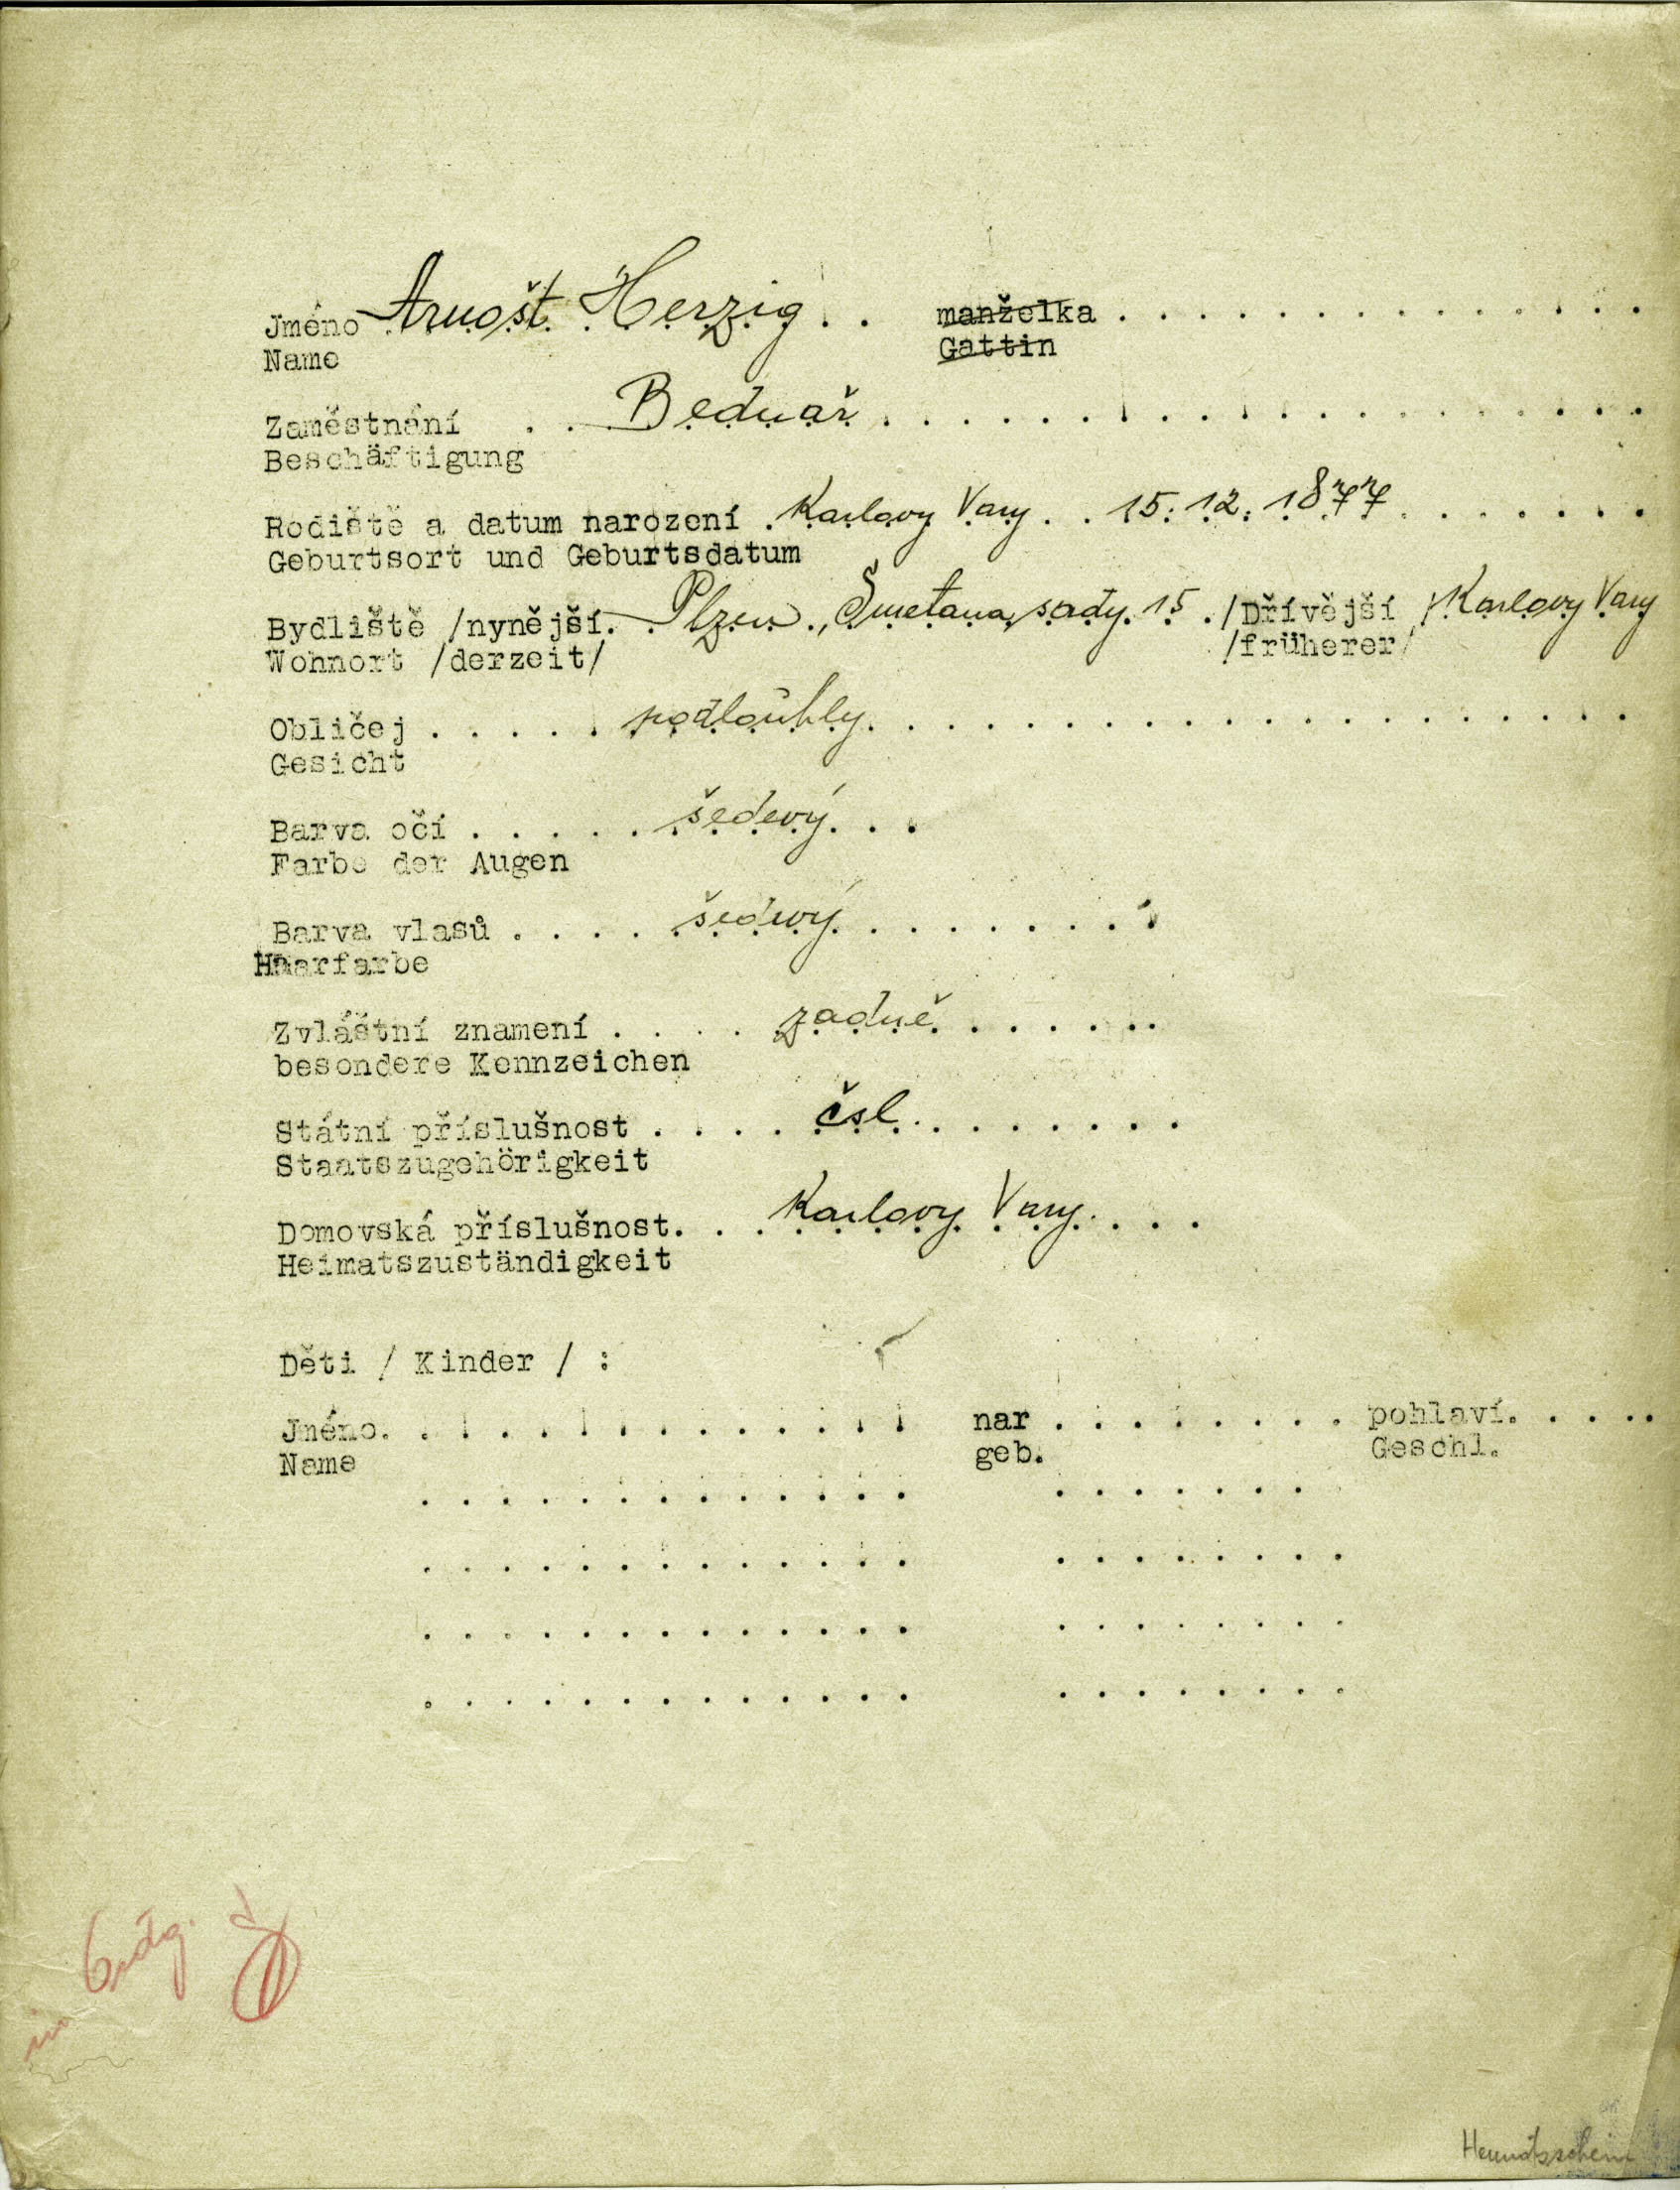 Jméno Arnošt Herzig . . manželka . . . . . . . . . . . . . .
Name Gattin
Zaměstnání . . Bednář . . . . . . . . . . . . . . . . . . . .
Beschäftigung
Rodiště a datum narození . Karlovy Vary . . 15. 12. 1877 . . . . . . .
Geburtsort und Geburtsdatum
Bydliště /nynější. Plzen, Smetana sady 15 ./Dřívější /Karlovy Vary
Wohnort /derzeit/ /früherer/
Obličej . . . . . podloúhly . . . . . . . . . . . . . . . . . . . .
Gesicht
Barva očí . . . . . šedevý . . .
Farbe der Augen
Barva vlasů . . . . šedivý . . . . . . . . .
Haarfarbe
Zvláštní znamení . . . . zadně . . . . . . .
besondere Kennzeichen
Státní příslušnost . . . . čsl. . . . . . . .
Staatszugehörigkeit
Domovská příslušnost. . . Karlovy Vary . . . .
Heimatszuständigkeit
Děti / Kinder / :
Jméno. . . . . . . . . . . . . . nar . . . . . . . . pohlaví. . . . .
Name geb. Geschl.